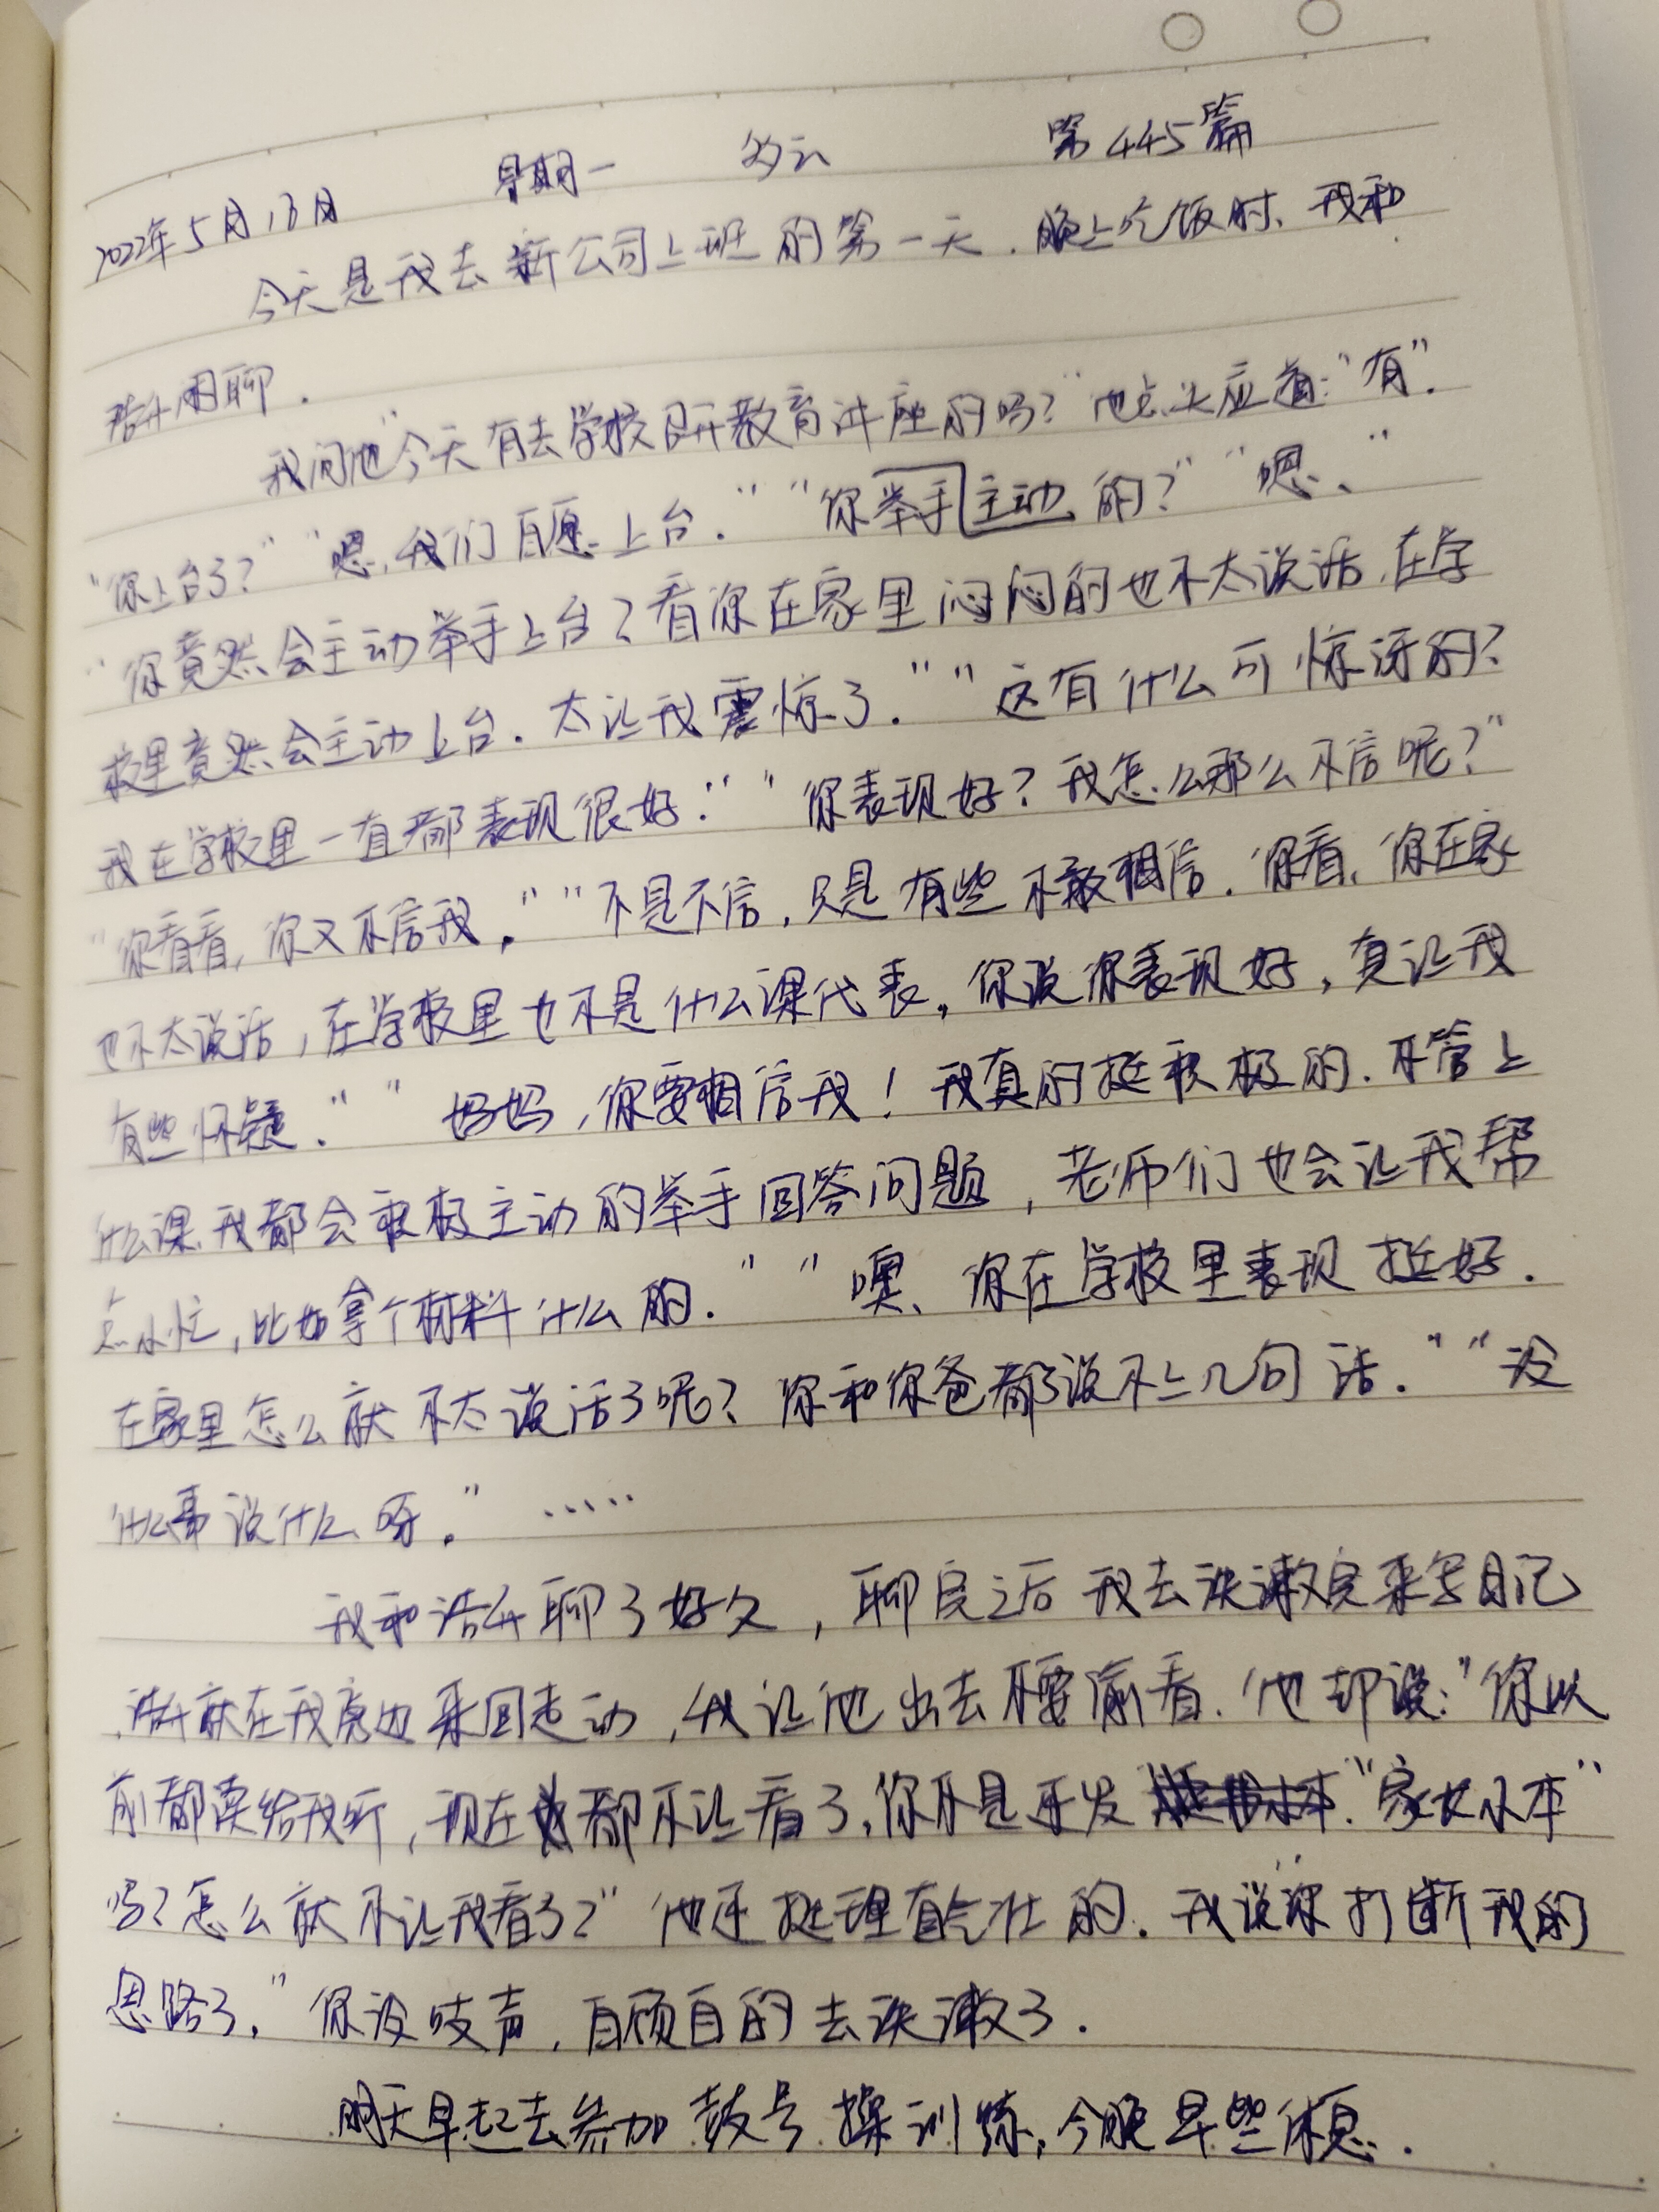 2022年5月13日 星期一 多云 第445篇
今天是我去新公司上班的第一天.晚上吃饭时、我和
浩升闲聊.
我问他"今天有去学校开教育讲座的吗?"他点头应道:"有".
"你上台了?""嗯,我们自愿上台.""你举手主动的?""嗯、"
"你竟然会主动举手上台?看你在家里闷闷的也不太说话,在学
校里竟然会主动上台.太让我震惊了.""这有什么可惊讶的?
我在学校里一直都表现很好.""你表现好?我怎么那么不信呢?"
"你看看,你又不信我。""不是不信,只是有些不敢相信.你看、你在家
也不太说话,在学校里也不是什么课代表。你说你表现好,真让我
有些怀疑.""妈妈,你要相信我!我真的挺积极的.不管上
什么课,我都会积极主动的举手回答问题,老师们也会让我帮
点小忙,比如拿个材料什么的.""噢、你在学校里表现挺好.
在家里怎么就不太说话了呢?你和你爸都说不上几句话.""没
什么事说什么呀。"……
我和浩升聊了好久,聊完之后我去洗漱完来写日记
,浩升就在我旁边来回走动,我让他出去不要偷看.他却说:"你以
前都读给我听,现在都不让看了,你不是还发"家女小本"
吗?怎么就不让我看了?"他还挺理直气壮的.我说你打断我的
思路了,"你没吱声,自顾自的去洗漱了.
明天早起去参加鼓号操训练,今晚早些休息.